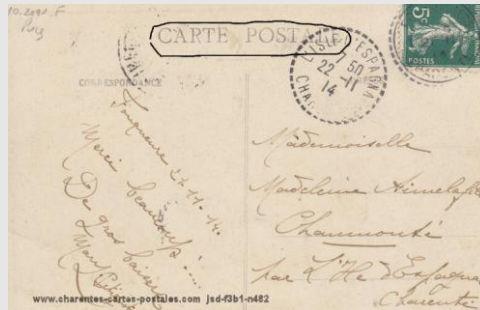 CARTE POSTALE
CORRESPONDANCE
L'ISLE D'ESPAGNAC
7 50
22 -11
14
5c
POSTES
22-11-14.
Merci beaucoup! .....
De gros baisers
Mademoiselle
Madeleine
Chaumonté
par L'Ile d'Espagnac
Charente
www.charentes-cartes-postales.com jsd-f3b1-n482